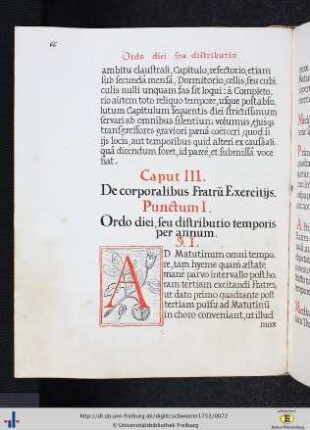 66
Ordo diei seu distributio
ambitu claustrali, Capitulo, refectorio, etiam
sub secunda mensa, Dormitorio, cellis, seu cubi,
culis nulli unquam fas sit loqui: à Completo,
rio autem toto reliquo tempore, usque post abso,
lutum Capitulum sequentis diei strictissimum
servari ab omnibus silentium volumus, ejusque
transgressores graviori pœnâ coërceri, quod si
ijs locis, aut temporibus quid alteri ex causâ ali,
quâ dicendum foret, id parcè, et submissâ voce
fiat.
Caput III.
De corporalibus Fratrū Exercitijs.
Punctum I.
Ordo diei, seu distributio temporis
per annum.
§. I.
AD Matutinum omni tempo,
re, tam hyeme quam æstate
manè parvo intervallo post ho,
ram tertiam excitandi Fratres,
ut dato primo quadrante post
tertiam pulsu ad Matutinū
in choro conveniant, ut illud
mox
http://dl.ub.uni-freiburg.de/diglit/schwoerer1753/0072
© Universitätsbibliothek Freiburg